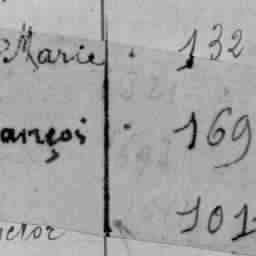 Marie . 132
ançois . 169
ctor 101